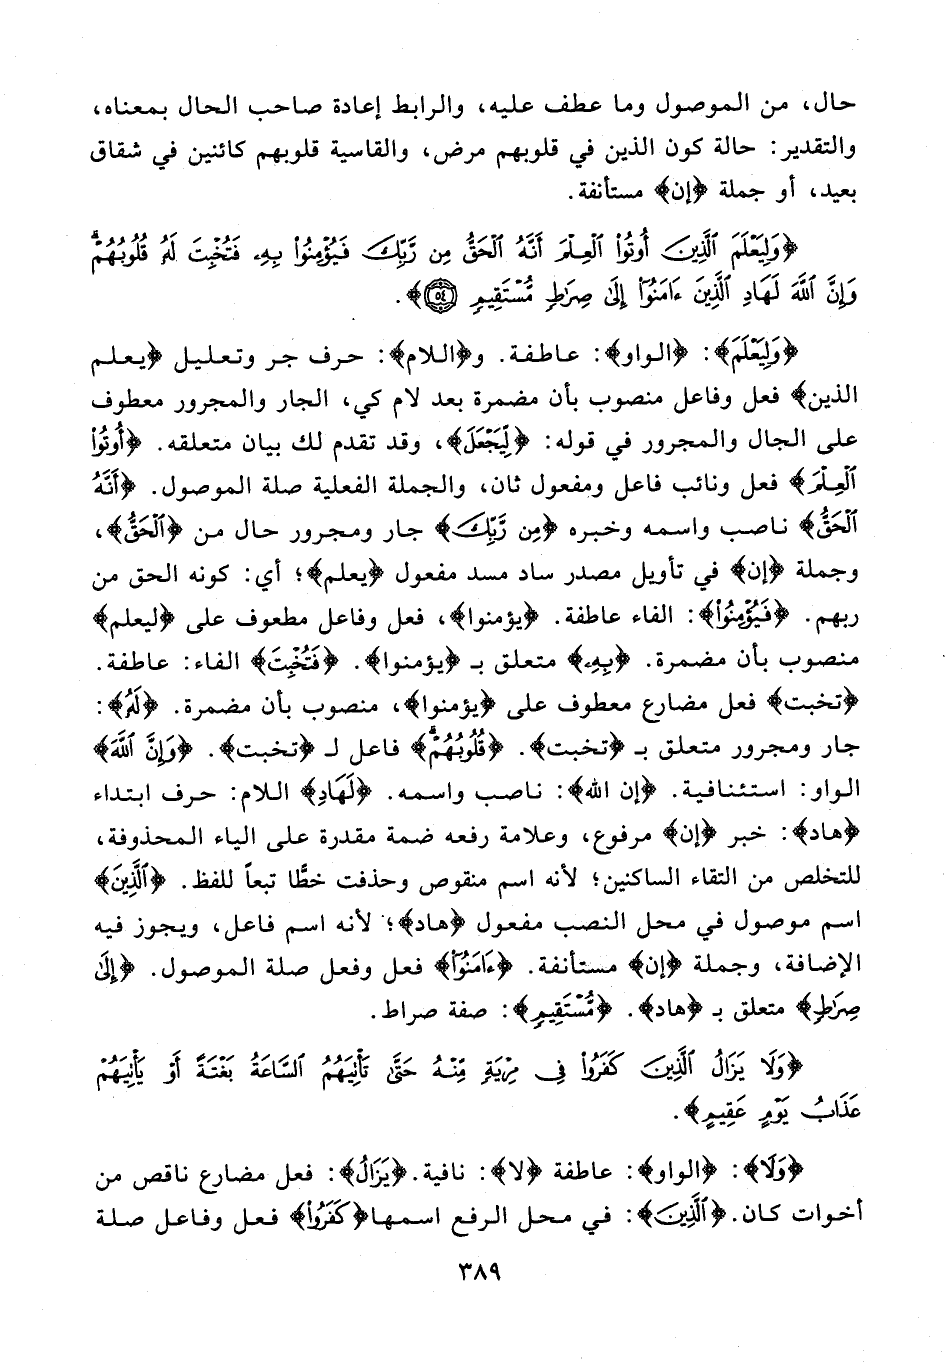 حال، من الموصول وما عطف عليه، والرابط إعادة صاحب الحال بمعناه،
والتقدير: حالة كون الذين في قلوبهم مرض، والقاسية قلوبهم كائنين في شقاق
بعيد، أو جملة ﴿إن﴾ مستأنفة.
﴿وَلِيَعْلَمَ ٱلَّذِينَ أُوتُوا۟ ٱلْعِلْمَ أَنَّهُ ٱلْحَقُّ مِن رَّبِّكَ فَيُؤْمِنُوا۟ بِهِۦ فَتُخْبِتَ لَهُۥ قُلُوبُهُمْ ۗ
وَإِنَّ ٱللَّهَ لَهَادِ ٱلَّذِينَ ءَامَنُوٓا۟ إِلَىٰ صِرَٰطٍ مُّسْتَقِيمٍ ٥٤﴾.
﴿وَلِيَعْلَمَ﴾: ﴿الواو﴾: عاطفة. و﴿اللام﴾: حرف جر وتعليل ﴿يعلم
الذين﴾ فعل وفاعل منصوب بأن مضمرة بعد لام كي، الجار والمجرور معطوف
على الجال والمجرور في قوله: ﴿لِّيَجْعَلَ﴾، وقد تقدم لك بيان متعلقه. ﴿أُوتُوا۟
ٱلْعِلْمَ﴾ فعل ونائب فاعل ومفعول ثان، والجملة الفعلية صلة الموصول. ﴿أَنَّهُ
ٱلْحَقُّ﴾ ناصب واسمه وخبره ﴿مِن رَّبِّكَ﴾ جار ومجرور حال من ﴿ٱلْحَقُّ﴾،
وجملة ﴿إن﴾ في تأويل مصدر ساد مسد مفعول ﴿يعلم﴾؛ أي: كونه الحق من
ربهم. ﴿فَيُؤْمِنُوا۟﴾: الفاء عاطفة. ﴿يؤمنوا﴾، فعل وفاعل مطعوف على ﴿ليعلم﴾
منصوب بأن مضمرة. ﴿بِهِۦ﴾ متعلق بـ ﴿يؤمنوا﴾. ﴿فَتُخْبِتَ﴾ الفاء: عاطفة.
﴿تخبت﴾ فعل مضارع معطوف على ﴿يؤمنوا﴾، منصوب بأن مضمرة. ﴿لَهُۥ﴾:
جار ومجرور متعلق بـ ﴿تخبت﴾. ﴿قُلُوبُهُمْ ۗ﴾ فاعل لـ ﴿تخبت﴾. ﴿وَإِنَّ ٱللَّهَ﴾
الواو: استئنافية. ﴿إن الله﴾: ناصب واسمه. ﴿لَهَادِ﴾ اللام: حرف ابتداء
﴿هاد﴾: خبر ﴿إن﴾ مرفوع، وعلامة رفعه ضمة مقدرة على الياء المحذوفة،
للتخلص من التقاء الساكنين؛ لأنه اسم منقوص وحذفت خطًّا تبعاً للفظ. ﴿ٱلَّذِينَ﴾
اسم موصول في محل النصب مفعول ﴿هاد﴾؛ لأنه اسم فاعل، ويجوز فيه
الإضافة، وجملة ﴿إن﴾ مستأنفة. ﴿ءَامَنُوٓا۟﴾ فعل وفعل صلة الموصول. ﴿إِلَىٰ
صِرَٰطٍ﴾ متعلق بـ ﴿هاد﴾. ﴿مُّسْتَقِيمٍ﴾: صفة صراط.
﴿وَلَا يَزَالُ ٱلَّذِينَ كَفَرُوا۟ فِى مِرْيَةٍ مِّنْهُ حَتَّىٰ تَأْتِيَهُمُ ٱلسَّاعَةُ بَغْتَةً أَوْ يَأْتِيَهُمْ
عَذَابُ يَوْمٍ عَقِيمٍ﴾.
﴿وَلَا﴾: ﴿الواو﴾: عاطفة ﴿لا﴾: نافية. ﴿يَزَالُ﴾: فعل مضارع ناقص من
أخوات كان. ﴿ٱلَّذِينَ﴾: في محل الرفع اسمها ﴿كَفَرُوا۟﴾ فعل وفاعل صلة
٣٨٩